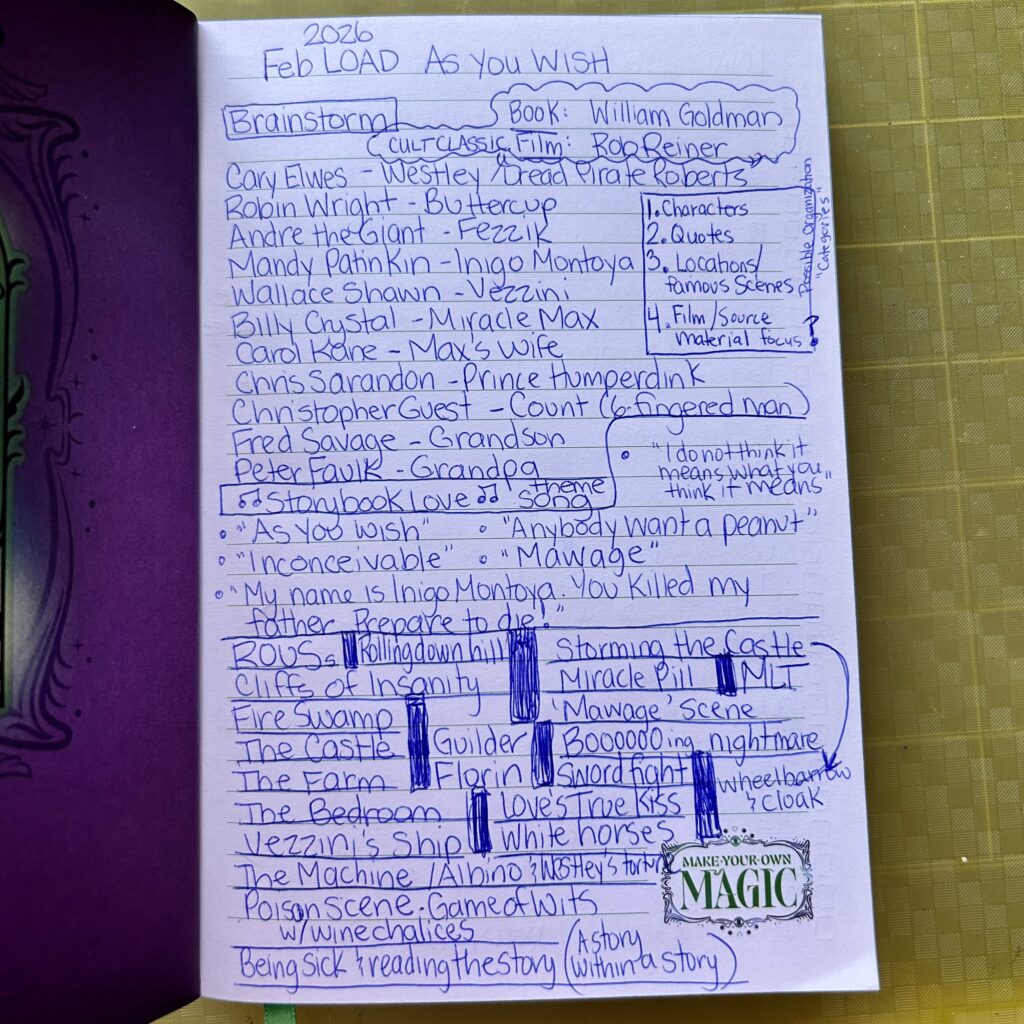 2026
Feb LOAD As You WISH
Brainstorm
Book: William Goldman
CULT CLASSIC Film: Rob Reiner
Cary Elwes - Westley / Dread Pirate Roberts
Robin Wright - Buttercup
Andre the Giant - Fezzik
Mandy Patinkin - Inigo Montoya
Wallace Shawn - Vezzini
Billy Crystal - Miracle Max
Carol Kane - Max's Wife
Chris Sarandon - Prince Humperdink
Christopher Guest - Count (6-fingered man)
Fred Savage - Grandson
Peter Faulk - Grandpa
Possible Organization
"Categories"
1. Characters
2. Quotes
3. Locations/
famous Scenes
4. Film/Source
material focus?
♫ Storybook Love ♫ theme
song
• "I do not think it
means what you
think it means"
• "As You Wish" • "Anybody want a peanut"
• "Inconceivable" • "Mawage"
• "My name is Inigo Montoya. You killed my
father. Prepare to die!"
ROUSs Rolling down hill Storming the Castle
Cliffs of Insanity Miracle Pill MLT
Fire Swamp 'Mawage' Scene
The Castle Guilder Boooooo ing nightmare
The Farm Florin Sword fight wheelbarrow
& cloak
The Bedroom Loves True Kiss
Vezzini's Ship White horses
The Machine / Albino & Westley's torture
Poison Scene. Game of Wits
w/ wine chalices
Being sick & reading the story (A story
within a story)
MAKE-YOUR-OWN
MAGIC